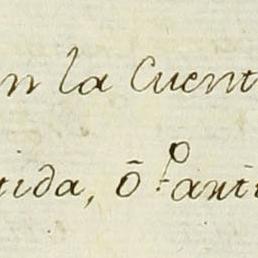 n la Cuent
tida, ō P.anti